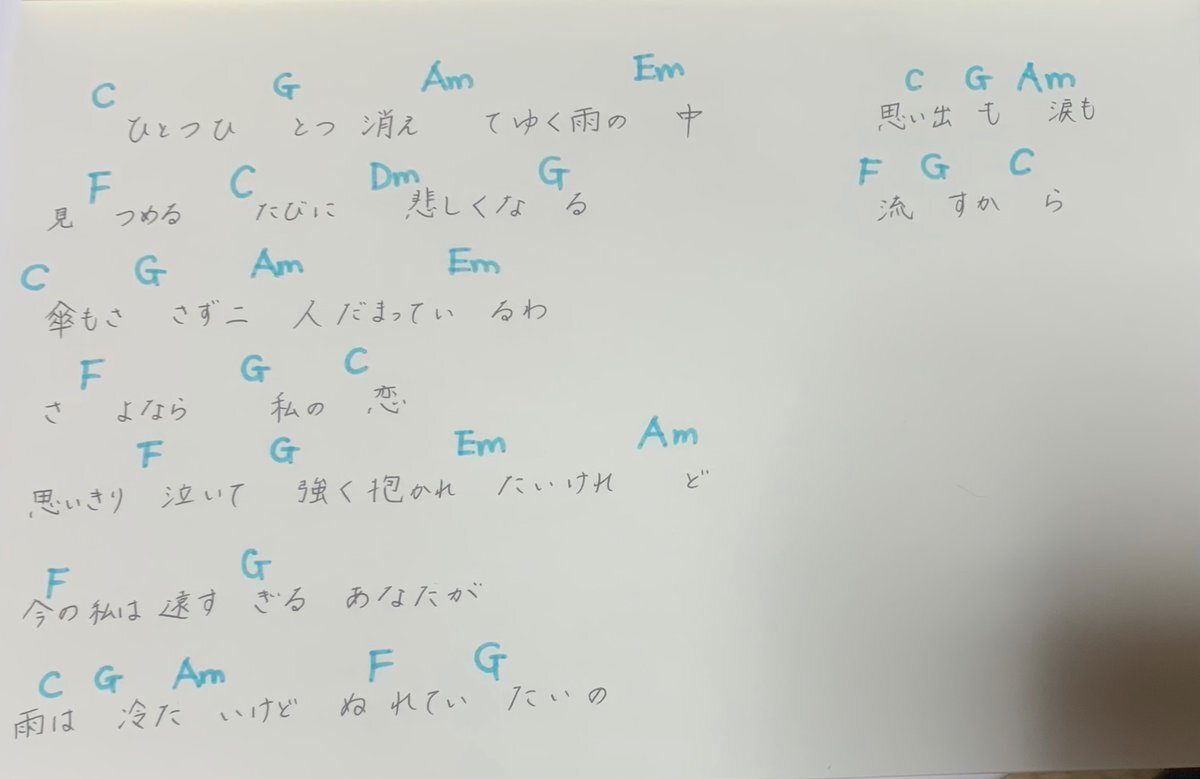 C G Am Em
ひとつひ とつ 消え てゆく雨の 中
F C Dm G
見 つめる たびに 悲しくな る
C G Am Em
傘もさ さず二 人 だまってい るわ
F G C
さ よなら 私の 恋
F G Em Am
思いきり 泣いて 強く抱かれ たいけれ ど
F G
今の私は遠す ぎる あなたが
C G Am F G
雨は 冷た いけど ぬ れてい たいの
C G Am
思い出 も 涙も
F G C
流 すか ら